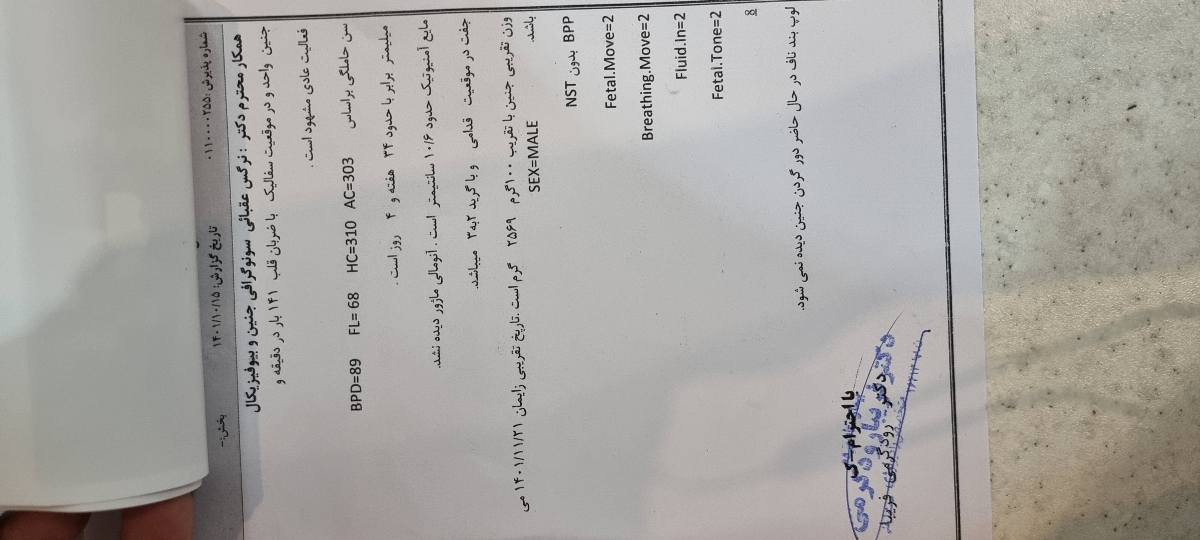 شماره پذیرش: ۰۱۱۰۰۰۰۲۵۵ تاریخ گزارش: ۱۴۰۱/۱۰/۱۵ بخش: -
همکار محترم دکتر : نرگس عقبائی سونوگرافی جنین و بیوفیزیکال
جنین واحد و در موقعیت سفالیک با ضربان قلب ۱۴۱ بار در دقیقه و
فعالیت عادی مشهود است .
سن حاملگی براساس BPD=89 FL= 68 HC=310 AC=303
میلیمتر برابر با حدود ۳۴ هفته و ۴ روز است .
مایع آمنیوتیک حدود ۱۰/۶ سانتیمتر است . آنومالی ماژور دیده نشد.
جفت در موقعیت قدامی و با گرید ۲به ۳ میباشد.
وزن تقریبی جنین با تقریب ۱۰۰گرم ۲۵۶۹ گرم است .تاریخ تقریبی زایمان ۱۴۰۱/۱۱/۲۱ می
باشد. SEX=MALE
BPP بدون NST
Fetal.Move=2
Breathing.Move=2
Fluid.In=2
Fetal.Tone=2
8
لوپ بند ناف در حال حاضر دور گردن جنین دیده نمی شود.
با احترام
دکتر رودگرمی